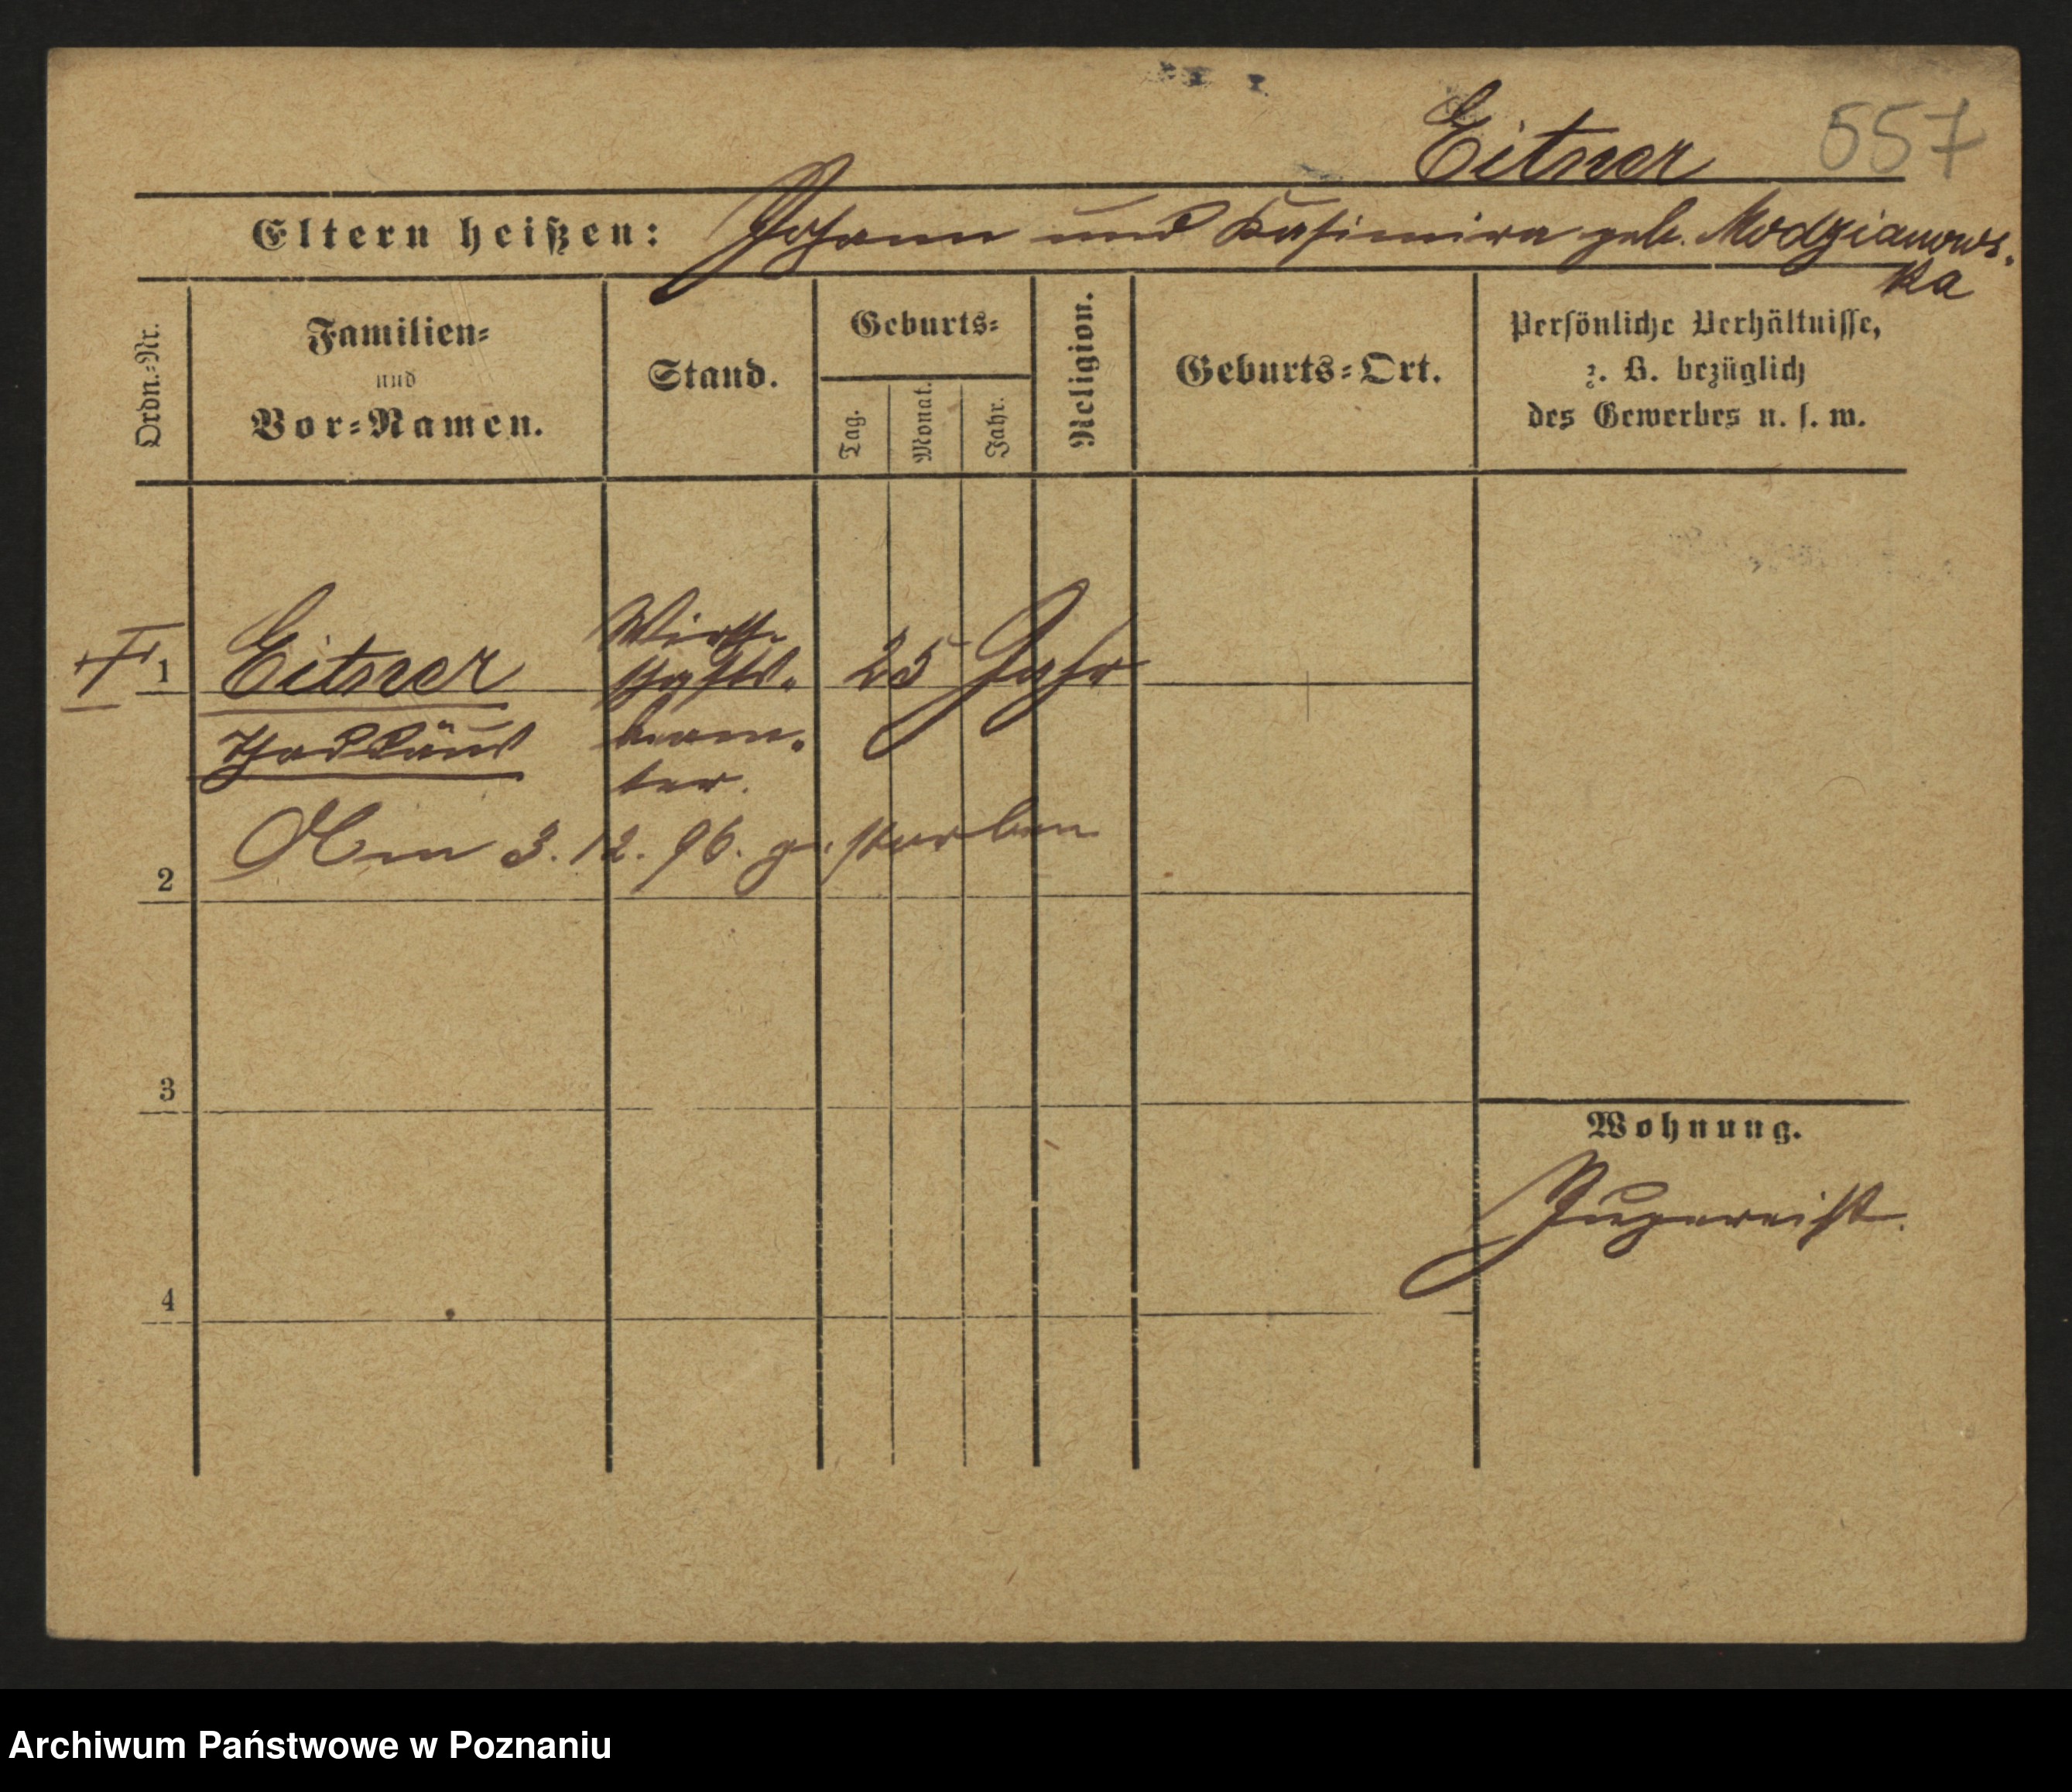 Eitner 557
Eltern heißen: Johann und Kasimira geb. Modzianows.
ka
Ordn.=Nr.
Familien=
und
Vor=Namen.
Stand.
Geburts=
Tag.
Monat.
Jahr.
Religion.
Geburts=Ort.
Persönliche Verhältnisse,
z. B. bezüglich
des Gewerbes u. s. w.
1
Eitner
Thaddäus
Wirth-
schafts-
beam-
ter.
25 Jahr
Am 3. 12. 96. gestorben
2
3
4
Wohnung.
Zugereist.
Archiwum Państwowe w Poznaniu